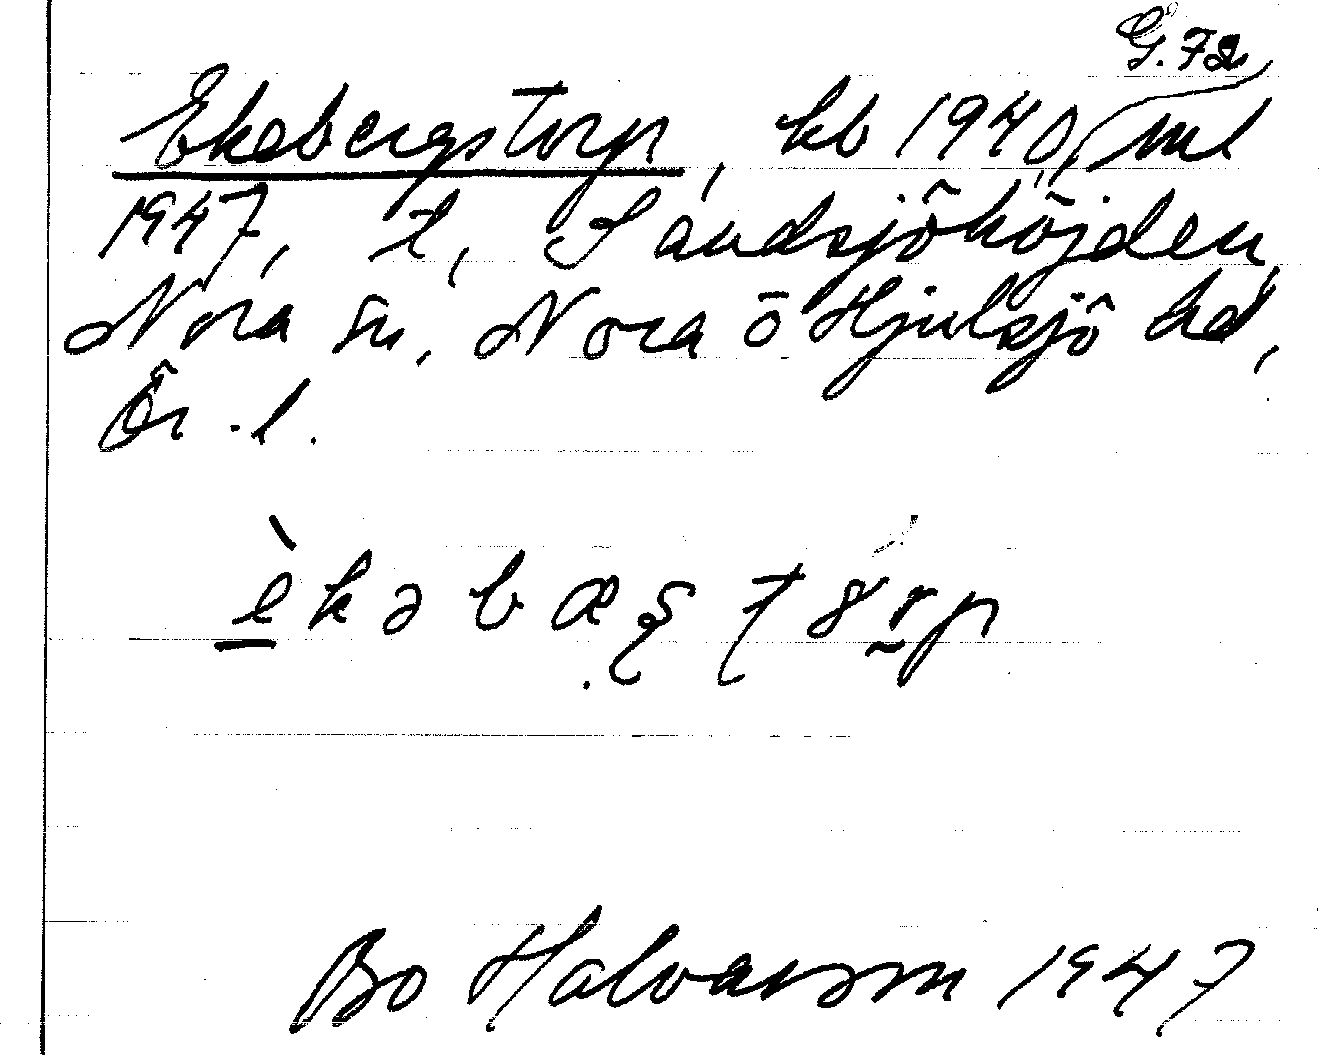 G. 72
Ekebergstorp, kb 1940, ml
1947, t, Sandsjöhöjden,
Nora sn, Nora o Hjulsjö hd,
Ör. l.
Bo Halvarson 1947